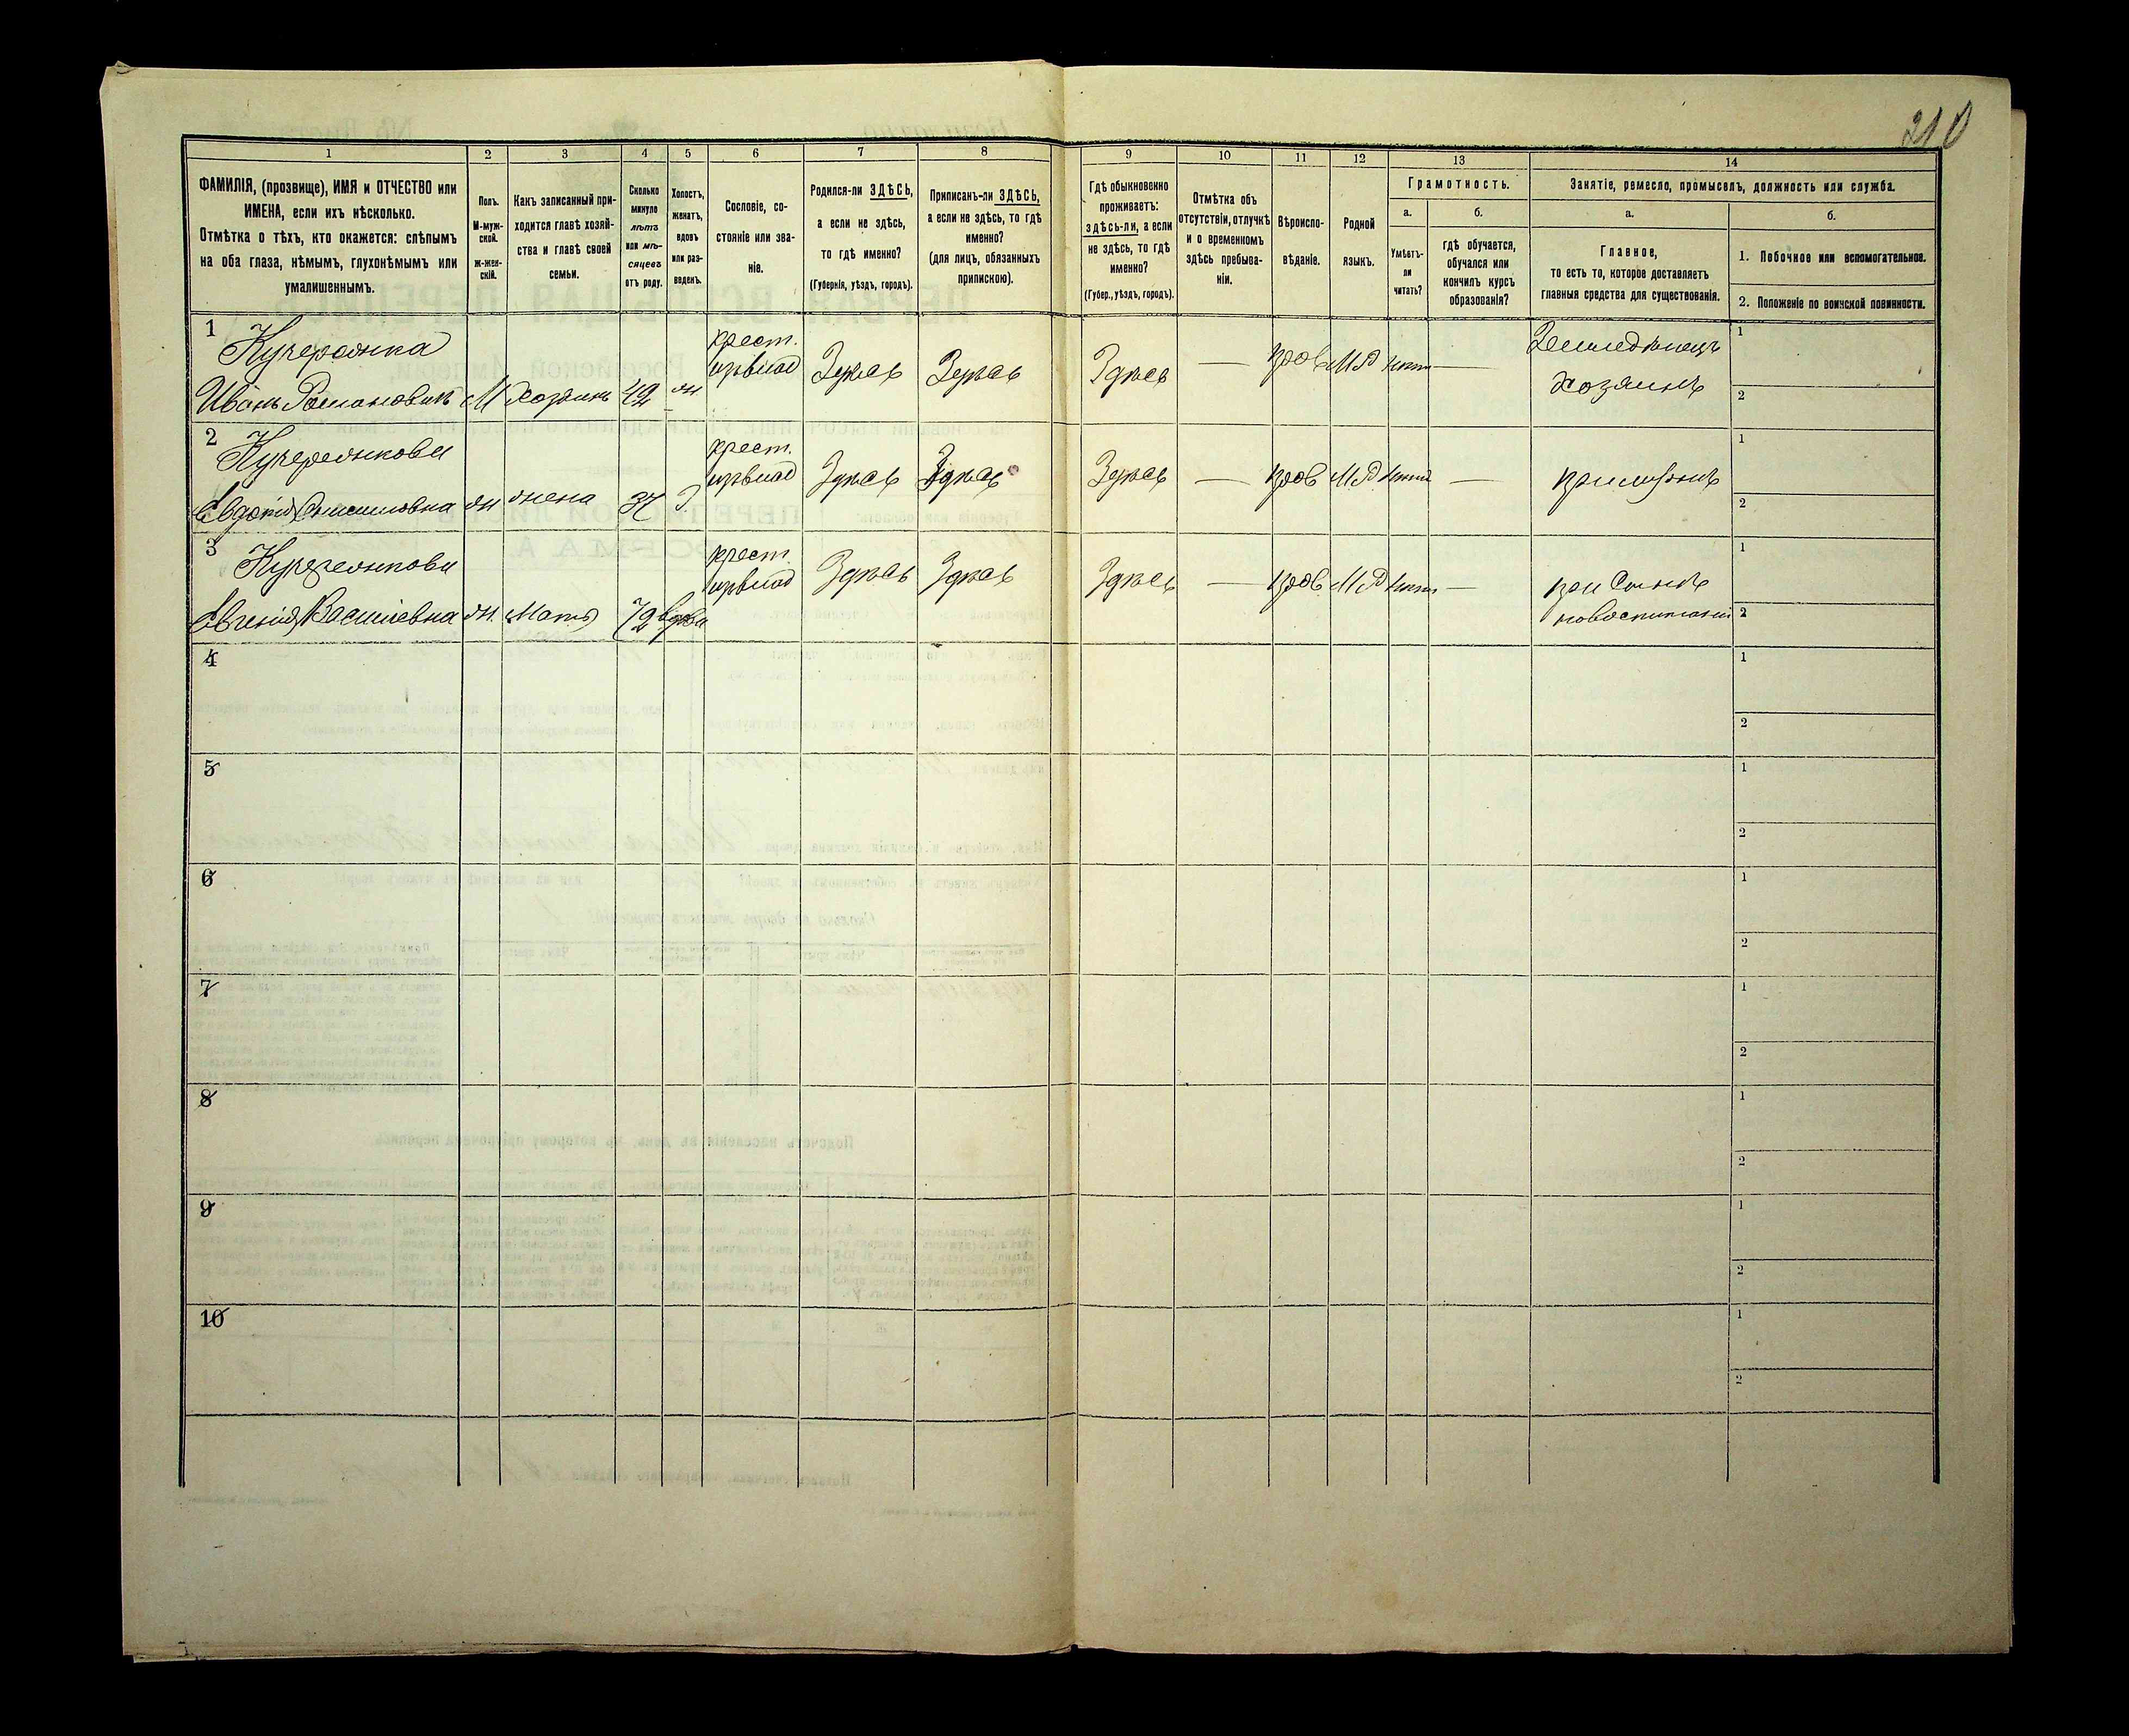 210
1 2 3 4 5 6 7 8 9 10 11 12 13 14
ФАМИЛІЯ, (прозвище), ИМЯ и ОТЧЕСТВО или
ИМЕНА, если ихъ нѣсколько.
Отмѣтка о тѣхъ, кто окажется: слѣпымъ
на оба глаза, нѣмымъ, глухонѣмымъ или
умалишеннымъ.
Полъ.
М-муж-
ской.
ж-жен-
скій.
Какъ записанный при-
ходится главѣ хозяй-
ства и главѣ своей
семьи.
Сколько
минуло
лѣтъ
или мѣ-
сяцевъ
отъ роду.
Холостъ,
женатъ,
вдовъ
или раз-
веденъ.
Сословіе, со-
стояніе или зва-
ніе.
Родился-ли ЗДѢСЬ,
а если не здѣсь,
то гдѣ именно?
(Губернія, уѣздъ, городъ).
Приписанъ-ли ЗДѢСЬ,
а если не здѣсь, то гдѣ
именно?
(для лицъ, обязанныхъ
припискою).
Гдѣ обыкновенно
проживаетъ:
здѣсь-ли, а если
не здѣсь, то гдѣ
именно?
(Губер., уѣздъ, городъ).
Отмѣтка объ
отсутствіи, отлучкѣ
и о временномъ
здѣсь пребыва-
ніи.
Вѣроиспо-
вѣданіе.
Родной
языкъ.
Грамотность.
а.
Умѣетъ-
ли
читать?
б.
гдѣ обучается,
обучался или
кончилъ курсъ
образованія?
Занятіе, ремесло, промыселъ, должность или служба.
а.
Главное,
то есть то, которое доставляетъ
главныя средства для существованія.
б.
1. Побочное или вспомогательное.
2. Положеніе по воинской повинности.
1
Иванъ Романовичъ М Хозяинъ 42 ж
крест.
Здѣсь Здѣсь Здѣсь — прав МР нѣт —
Земледѣлецъ
Хозяинъ
1
2
2
жена
крест.
Здѣсь Здѣсь Здѣсь — прав МР нѣт —
1
2
3
Евгенія Василіевна ж. Мать 72 вдова
крест.
Здѣсь Здѣсь Здѣсь — прав МР нѣт —
при Сынѣ
1
2
4
1
2
5
1
2
6
1
2
7
1
2
8
1
2
9
1
2
10
1
2